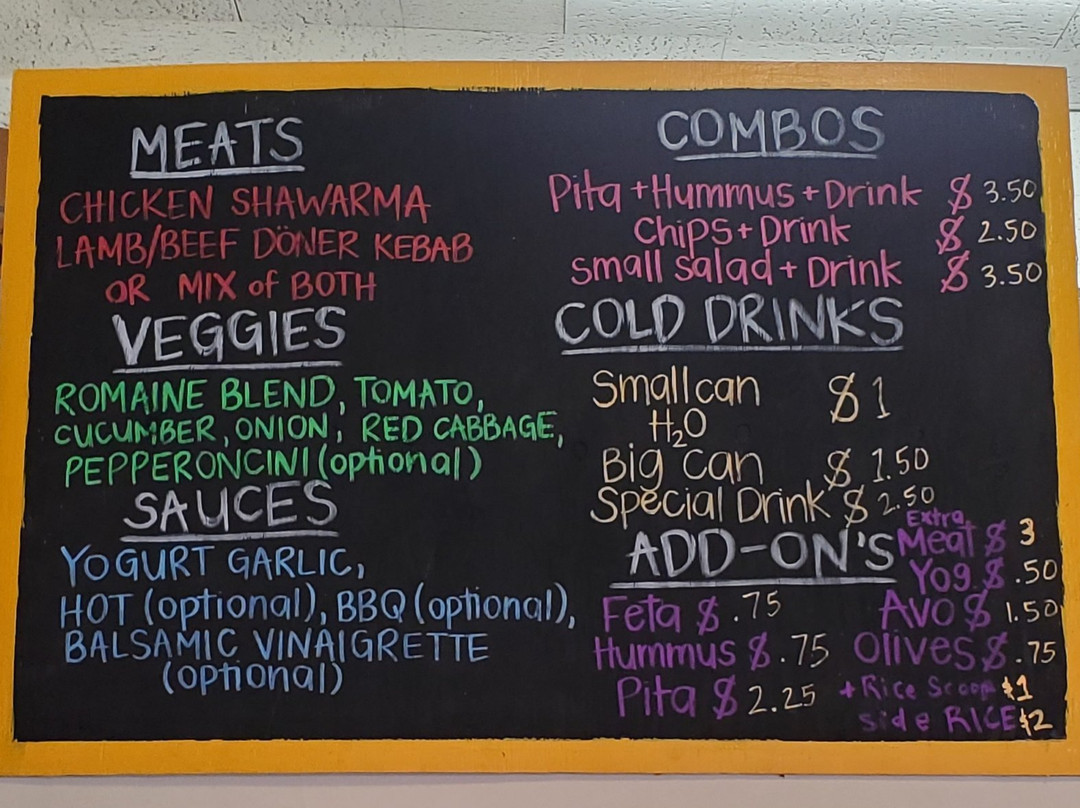 MEATS
CHICKEN SHAWARMA
LAMB/BEEF DÖNER KEBAB
OR MIX of BOTH
VEGGIES
ROMAINE BLEND, TOMATO,
CUCUMBER, ONION, RED CABBAGE,
PEPPERONCINI (optional)
SAUCES
YOGURT GARLIC,
HOT (optional), BBQ (optional),
BALSAMIC VINAIGRETTE
(optional)
COMBOS
Pita + Hummus + Drink $ 3.50
Chips + Drink $ 2.50
Small Salad + Drink $ 3.50
COLD DRINKS
Small can $ 1
H₂O
Big can $ 1.50
Special Drink $ 2.50
ADD-ON'S
Extra
Meat $ 3
Yog. $ .50
Feta $ .75
Avo $ 1.50
Hummus $ .75
Olives $ .75
Pita $ 2.25
+ Rice Scoop $1
side RICE $2